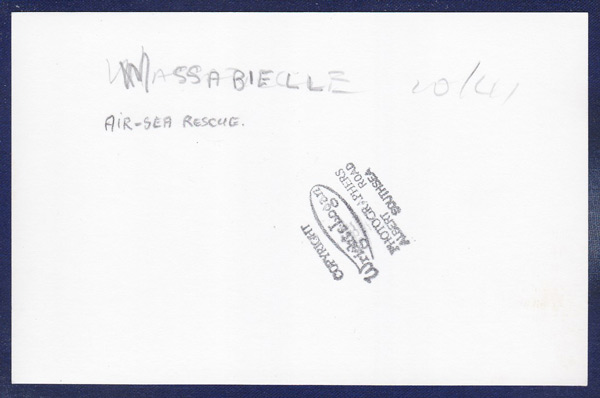 MASSABIELLE 20/41
AIR-SEA RESCUE.
COPYRIGHT
Wright & Logan
PHOTOGRAPHERS
ALBERT ROAD
SOUTHSEA